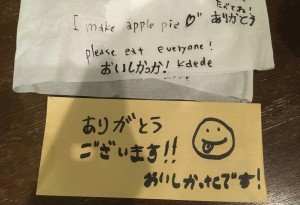 I make apple pie ♡
たべてね!
ありがとう
please eat everyone!
おいしかっか! kaede
ありがとう
ございます!!
おいしかったです!